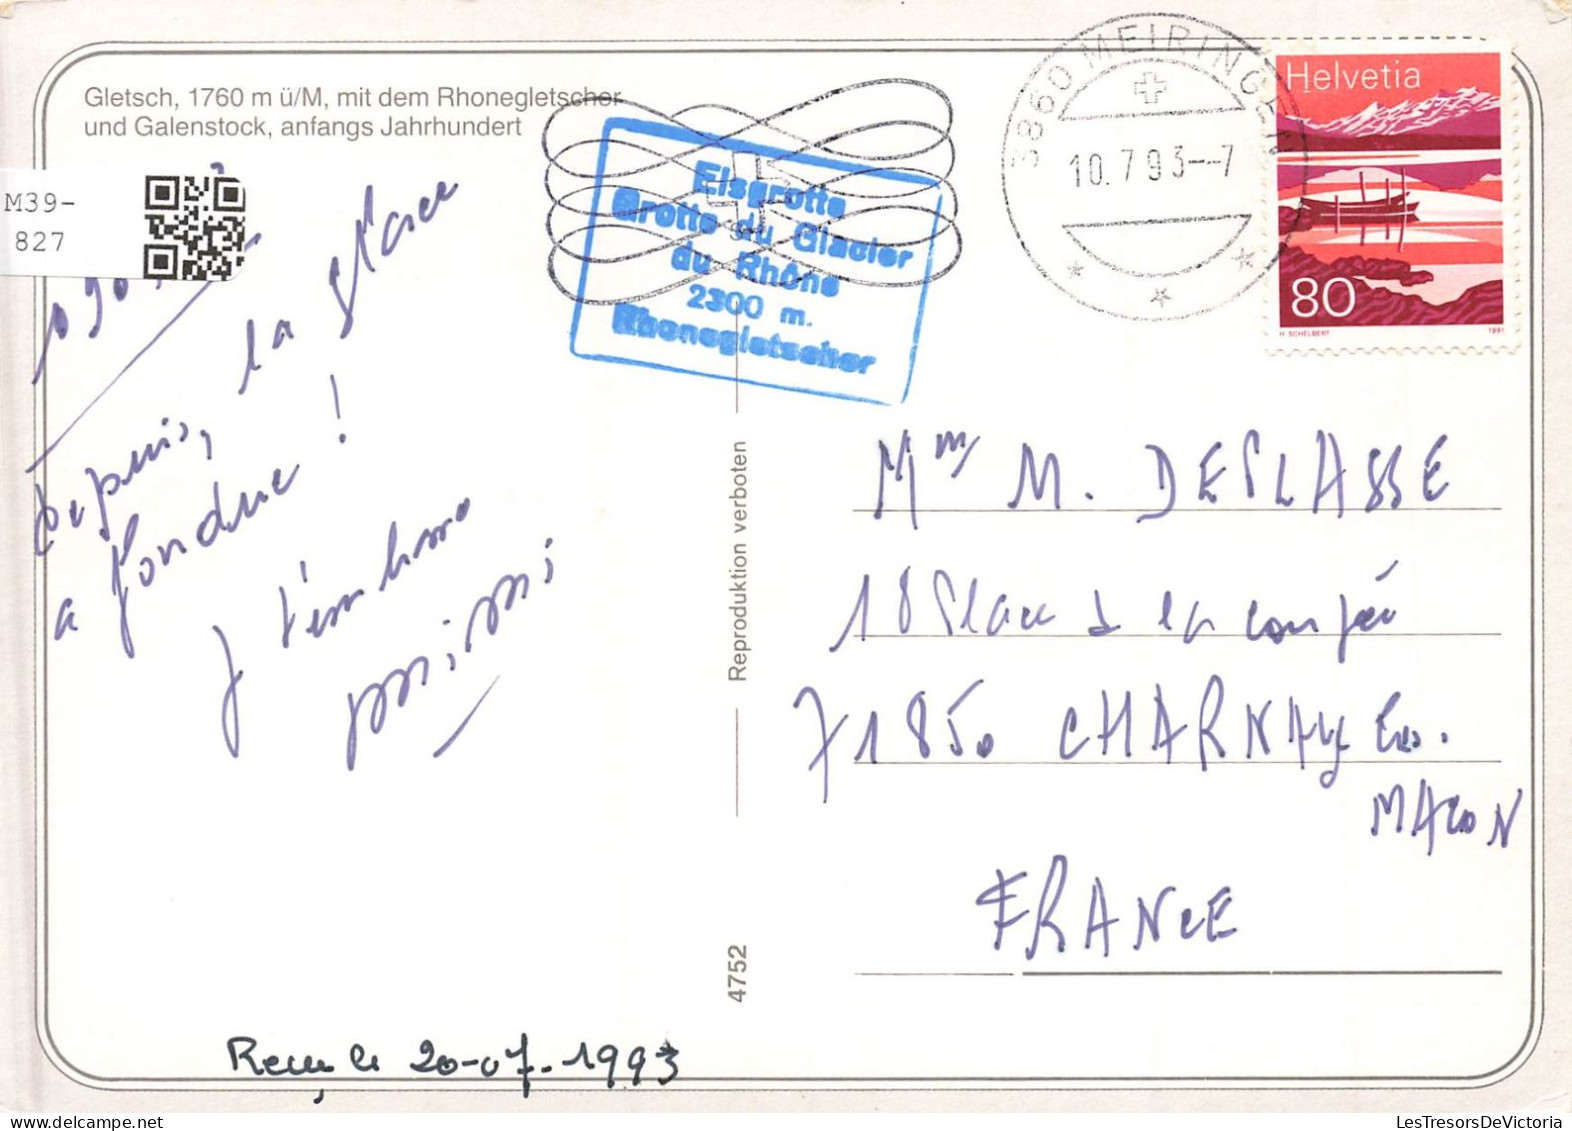 Gletsch, 1760 m ü/M, mit dem Rhonegletscher
und Galenstock, anfangs Jahrhundert
M39-
827
depuis, la glace
a fondue !
Je t'embrasse
Mimi
Eisgrotte
Grotte du Glacier
du Rhône
2300 m.
Rhonegletscher
3860 MEIRINGEN
10.7.93--7
Helvetia
80
H. SCHELBERT
1991
Reproduktion verboten
4752
Mme M. DEPLASSE
18 Place de la
71850 CHARNAY Les.
MACON
FRANCE
Reçu le 20-07-1993
LesTresorsDeVictoria.com